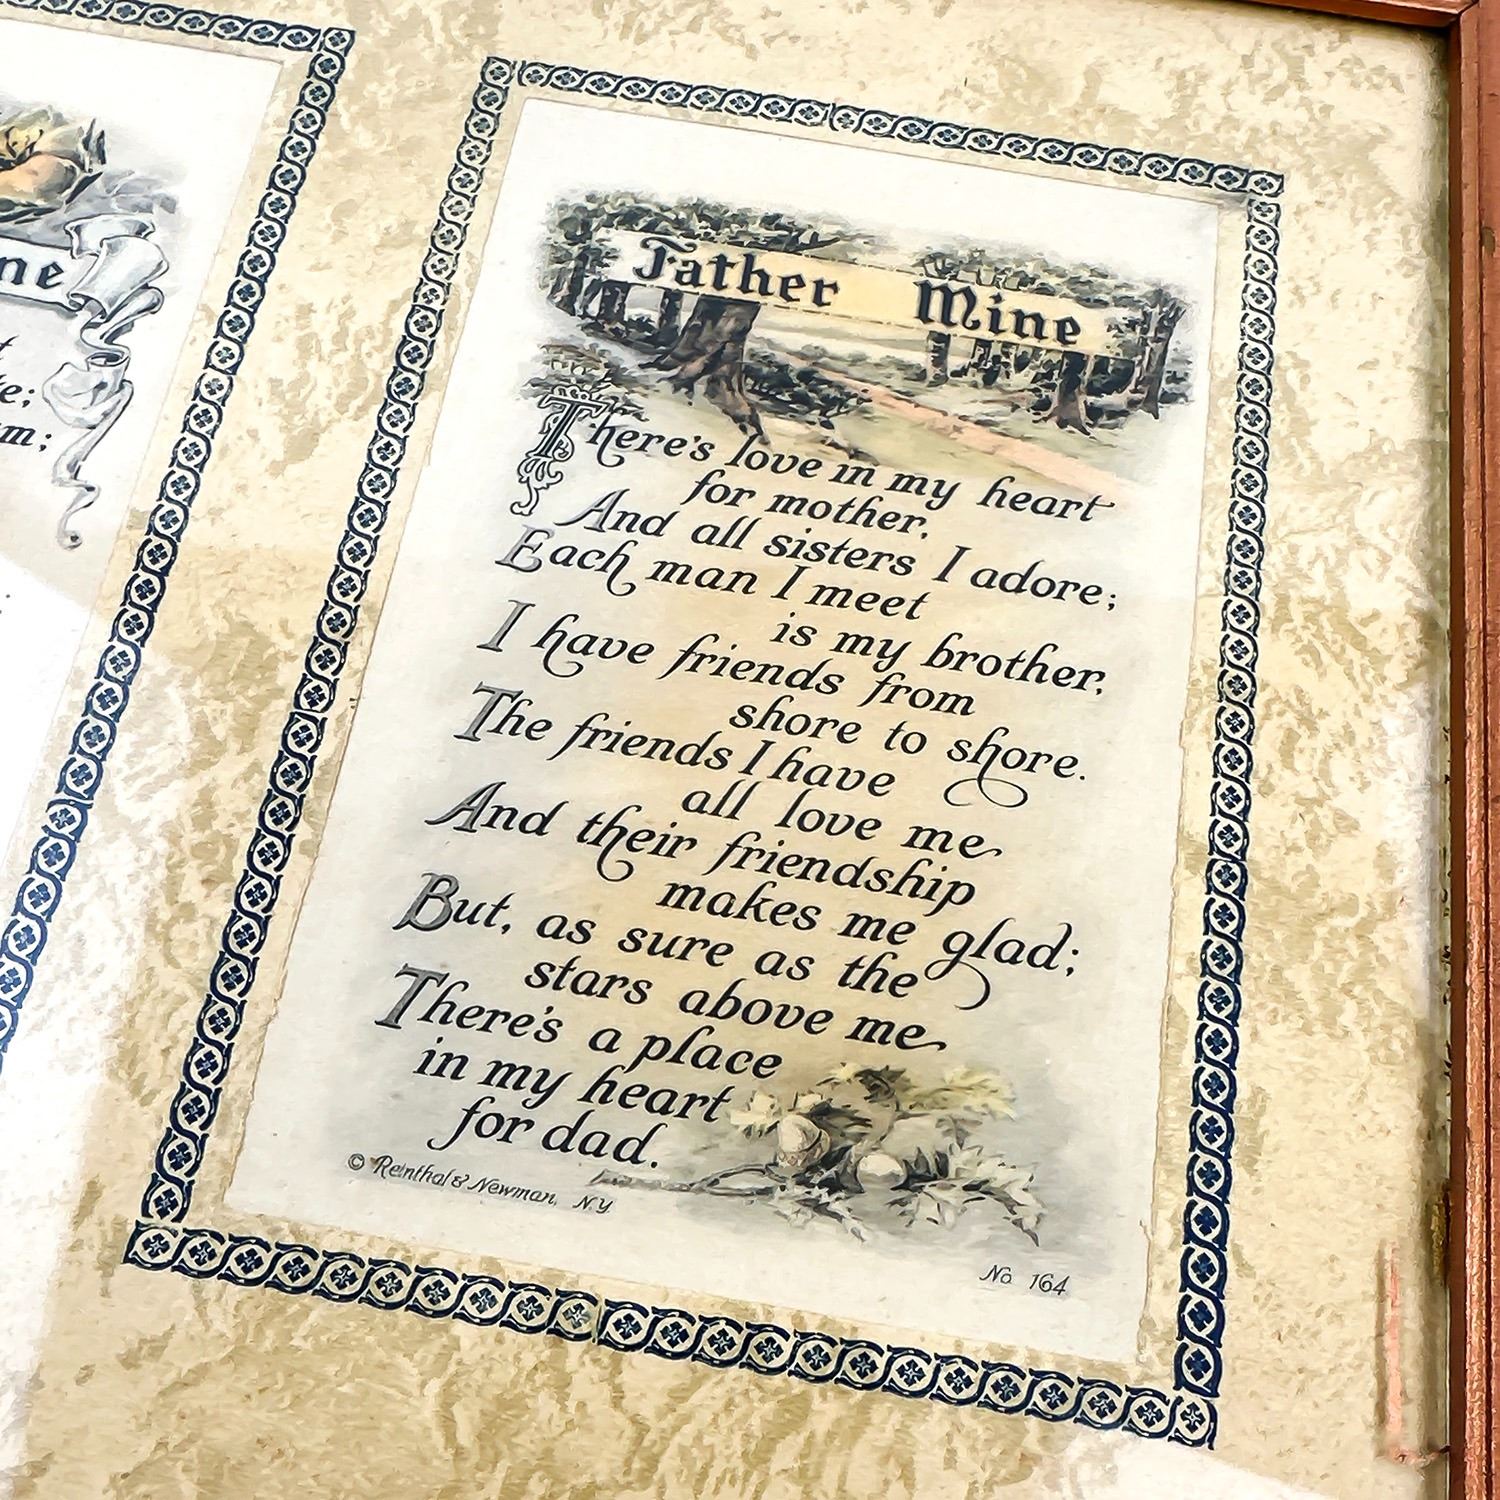 ne
e;
m;
Father Mine
There's love in my heart
for mother,
And all sisters I adore;
Each man I meet
is my brother,
I have friends from
shore to shore.
The friends I have
all love me
And their friendship
makes me glad;
But, as sure as the
stars above me
There's a place
in my heart
for dad.
© Reinthal & Newman, N.Y.
No. 164